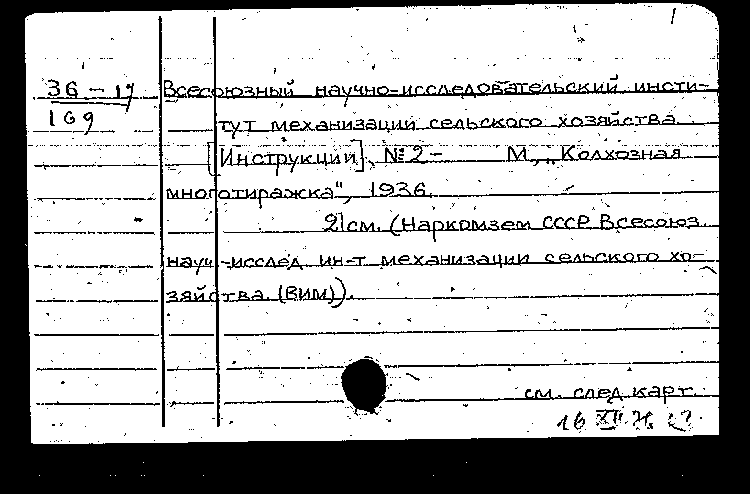 1
36-17 Всесоюзный научно-исследовательский инсти-
169 тут механизации сельского хозяйства
[Инструкции], № 2- М., „Колхозная
многотиражка", 1936.
21 см. (Наркомзем СССР. Всесоюз.
науч.-исслед. ин-т механизации сельского хо-
зяйства. (ВИМ)).
см. след. карт.
16 XII